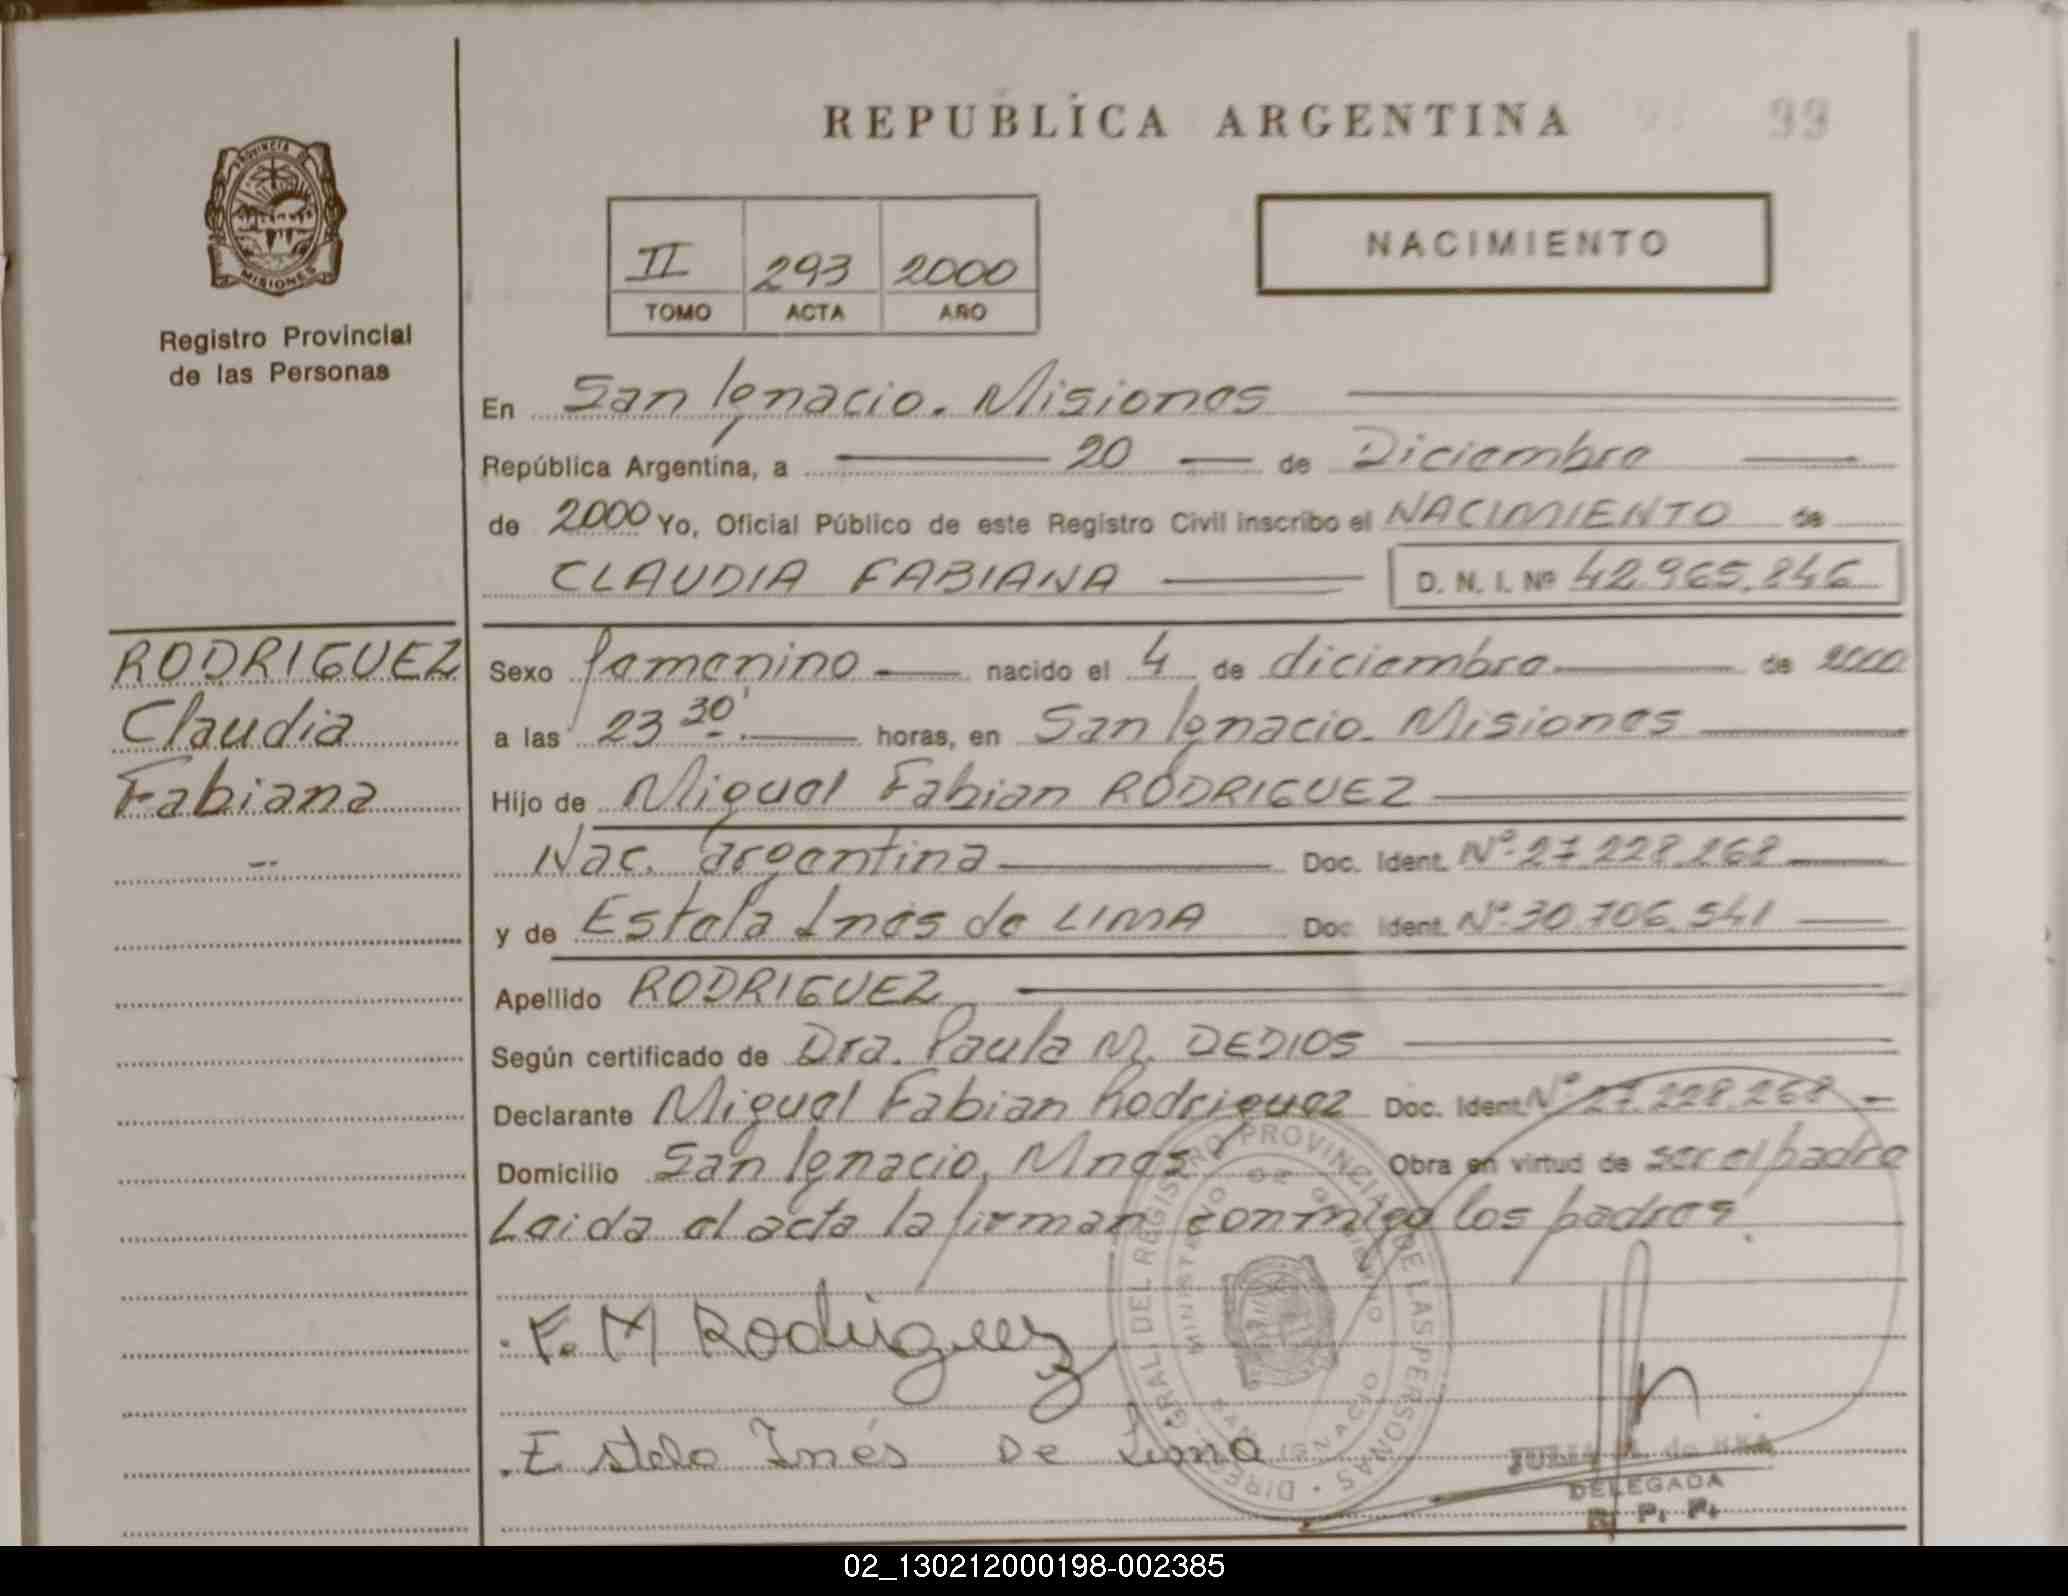 REPUBLICA ARGENTINA 99
PROVINCIA DE
MISIONES
Registro Provincial
de las Personas
II 293 2000
TOMO ACTA AÑO
NACIMIENTO
En San Ignacio. Misiones
República Argentina, a 20 de Diciembre
de 2000 Yo, Oficial Público de este Registro Civil inscribo el NACIMIENTO de
CLAUDIA FABIANA D. N. I. Nº 42.965.846
RODRIGUEZ
Claudia
Fabiana
Sexo femenino nacido el 4 de diciembre de 2000
a las 23 30' horas, en San Ignacio. Misiones
Hijo de Miguel Fabian RODRIGUEZ
Nac. argentina Doc. Ident. Nº 27.228.268
y de Estela Inés de LIMA Doc. Ident. Nº 30.706.541
Apellido RODRIGUEZ
Según certificado de Dra. Paula M. DEDIOS
Declarante Miguel Fabian Rodriguez Doc. Ident. Nº 27.228.268
Domicilio San Ignacio, Mnes Obra en virtud de ser el padre
Leida el acta la firman conmigo los padres.
F. M Rodriguez
Estela Inés De Lima
DIREC. GRAL. DEL REGISTRO PROVINCIAL DE LAS PERSONAS
MINISTERIO DE GOBIERNO
SAN IGNACIO
DELEGADA
R. P. P.
02_130212000198-002385